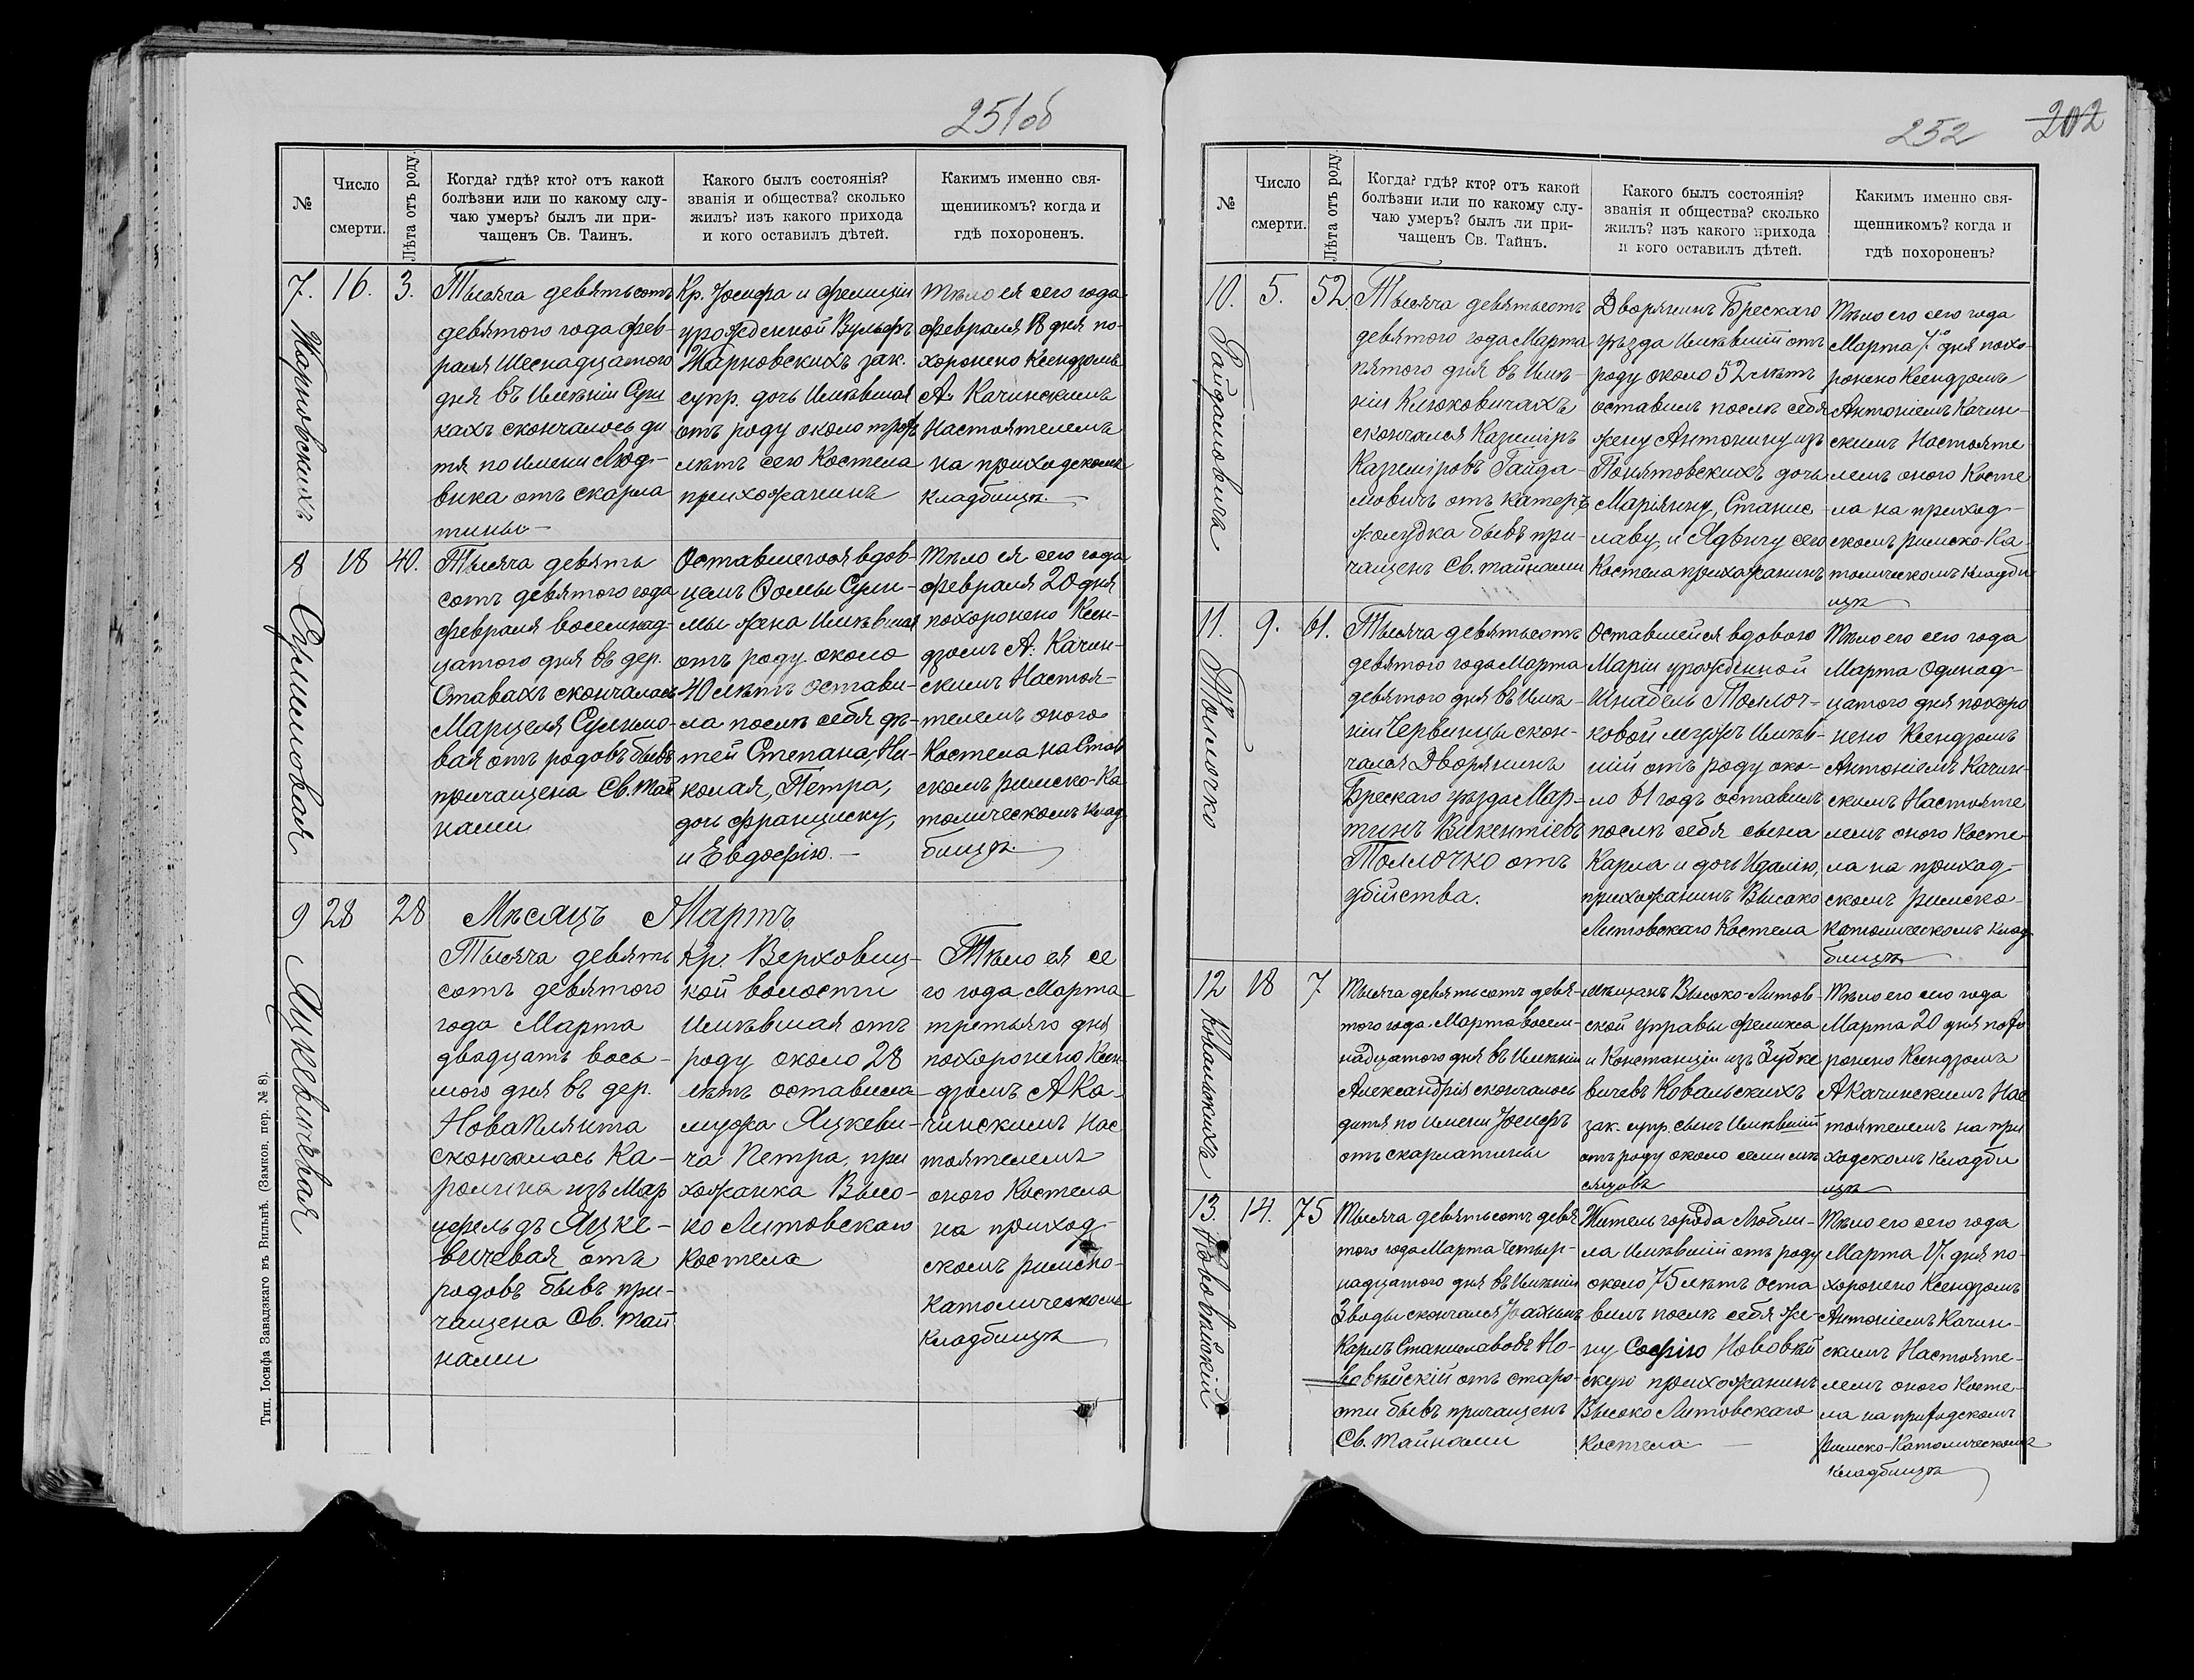 251об
№
Число
смерти.
Лѣта отъ роду.
Когда? гдѣ? кто? отъ какой
болѣзни или по какому слу-
чаю умеръ? былъ ли при-
чащенъ Св. Таинъ.
Какого былъ состоянія?
званія и общества? сколько
жилъ? изъ какого прихода
и кого оставилъ дѣтей.
Какимъ именно свя-
щенникомъ? когда и
гдѣ похороненъ.
7. Жарновскихъ
16.
3.
Тысяча девятьсотъ
девятого года фев-
раля Шеснадцатого
дня въ Имѣніи Суш
кахъ скончалось ди
тя по имени Люд-
вика отъ скарла
тины-
Кр. Іосифа и Фелиціи
урожденной Вульфъ
Жарновскихъ зак.
супр. дочь Имѣвшая
отъ роду около трехъ
лѣтъ сего Костела
прихожанинъ
Тѣло ея сего года
февраля 18 дня по-
хоронено Ксендзомъ
А. Качинскимъ
Настоятелемъ
на приходскомъ
кладбищѣ.
8 Сулимовая
18
40.
Тысяча девять
сотъ девятого года
февраля восемнад-
цатого дня въ дер.
Ставахъ скончалась
Марцеля Сулимо-
вая отъ родовъ бывъ
причащена Св. Тай
нами
Оставшегося вдов-
цемъ Ѳомы Сули-
мы жена Имѣвшая
отъ роду около
40 лѣтъ остави-
ла послѣ себя дѣ-
тей Степана, Ни-
колая, Петра,
дочь Франциску,
и Евдофію.-
Тѣло ея сего года
февраля 20 дня
похоронено Ксен-
дзомъ А. Качин-
скимъ Настоя-
телемъ оного
Костела на Став
скомъ римско-Ка
толическомъ клад
бищѣ.
9 Яцкевичевая
28
28
Мѣсяцъ Мартъ
Тысяча девять
сотъ девятого
года Марта
двадцать вось-
мого дня въ дер.
Новаплянта
скончалась Ка-
ролина изъ Мар
цфельдъ Яцке-
вичевая отъ
родовъ бывъ при-
чащена Св. тай
нами
Кр. Верховиц-
кой волости
Имѣвшая отъ
роду около 28
лѣтъ оставила
мужа Яцкеви-
ча Петра, при
хожанка Высо-
ко Литовскаго
костела
Тѣло ея се
го года Марта
третьяго дня
похоронено Ксен
дзомъ А Ка-
чинскимъ Нас
тоятелемъ
оного Костела
на приход-
скомъ римско-
католическомъ
кладбищѣ
Тип. Іосифа Завадзкаго въ Вильнѣ. (Замков. пер. № 8).
252 202
№
Число
смерти.
Лѣта отъ роду.
Когда? гдѣ? кто? отъ какой
болѣзни или по какому слу-
чаю умеръ? былъ ли при-
чащенъ Св. Тайнъ.
Какого былъ состоянія?
званія и общества? сколько
жилъ? изъ какого прихода
и кого оставилъ дѣтей.
Какимъ именно свя-
щенникомъ? когда и
гдѣ похороненъ?
10. Гайдамовичъ
5.
52.
Тысяча девятьсотъ
девятого года Марта
пятого дня въ Имѣ-
ніи Клюковичахъ
скончался Казиміръ
Казиміровъ Гайда-
мовичъ отъ катеръ
желудка бывъ при-
чащенъ Св. тайнами
Дворянинъ Брескаго
уѣзда Имѣвшій отъ
роду около 52 лѣтъ
оставилъ послѣ себя
жену Антонину изъ
Понятовскихъ дочь
Маріянну, Станис
лаву, и Ядвигу сего
Костела прихожанинъ
Тѣло его сего года
Марта 7. дня похо-
ронено Ксендзомъ
Антоніемъ Качин-
скимъ Настояте
лемъ оного Косте
ла на приход-
скомъ римско-Ка
толическомъ кладби
щѣ
11. Толлочко
9.
61.
Тысяча девятьсотъ
девятого года Марта
девятого дня въ Имѣ-
ніи Червинцы скон-
чался Дворянинъ
Брескаго уѣзда Мар-
тинъ Викентіевъ
Толлочко отъ
убійства.
Оставшейся вдовою
Маріи урожденной
Шнабель Толлоч-
ковой мужъ Имѣв-
шій отъ роду око-
ло 61 годъ оставилъ
послѣ себя сына
Карла и дочь Идалію,
прихожанинъ Высоко
Литовскаго Костела
Тѣло его сего года
Марта Одинад-
цатого дня похоро
нено Ксендзомъ
Антоніемъ Качин-
скимъ Настояте
лемъ оного Косте-
ла на приход-
скомъ римско-
католическомъ клад-
бищѣ
12 Ковальскихъ
18
7
Тысяча девятьсотъ девя-
того года Марта восем-
надцатого дня въ Имѣніи
Александрія скончалось
дитя по имени Іосифъ
отъ скарлатины
Мѣщанъ Высоко-Литов-
ской управы Феликса
и Констанціи изъ Зубке
вичевъ Ковальскихъ
зак. супр. сынъ Имѣвшій
отъ роду около семи мѣ
сяцовъ
Тѣло его сего года
Марта 20 дня похо
ронено Ксендзомъ
А Качинскимъ Нас
тоятелемъ на при
ходскомъ кладби
щѣ
13. Нововѣйскій
14.
75
Тысяча девятьсотъ девя
того года Марта четыр-
надцатого дня въ Имѣніи
Зводы скончался Іоахимъ
Карлъ Станиславовъ Но-
вовѣйскій отъ старо-
сти бывъ причащенъ
Св. Тайнами
Житель города Любли-
на Имѣвшій отъ роду
около 75 лѣтъ оста
вилъ послѣ себя же-
ну Софію Нововѣй
скую прихожанинъ
Высоко Литовскаго
костела -
Тѣло его сего года
Марта 17. дня по-
хоронено Ксендзомъ
Антоніемъ Качин-
скимъ Настояте-
лемъ оного Косте-
ла на приходскомъ
Римско-Католическомъ
кладбищѣ